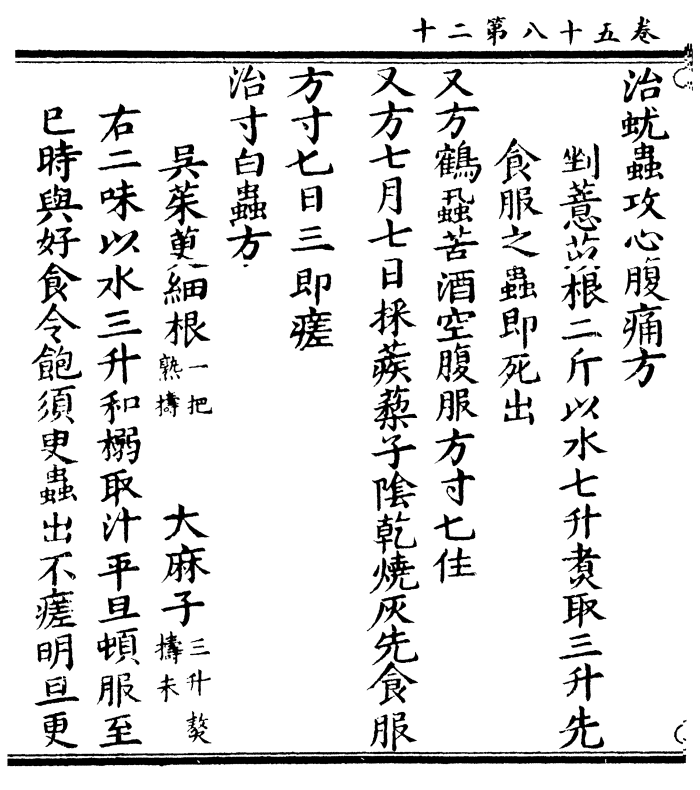 卷五十八第二十
治蚘蟲攻心腹痛方
剉薏苡根二斤以水七升煑取三升先
食服之蟲即死出
又方鶴虱蟲苦酒空腹服方寸七佳
又方七月七日採蒺䔧子陰乾燒灰先食服
方寸七日三即瘥
治寸白蟲方
吳茱萸細根一把熟擣 大麻子三升熬擣末
右二味以水三升和搦取汁平旦頓服至
巳時與好食令飽須臾蟲出不瘥明旦更